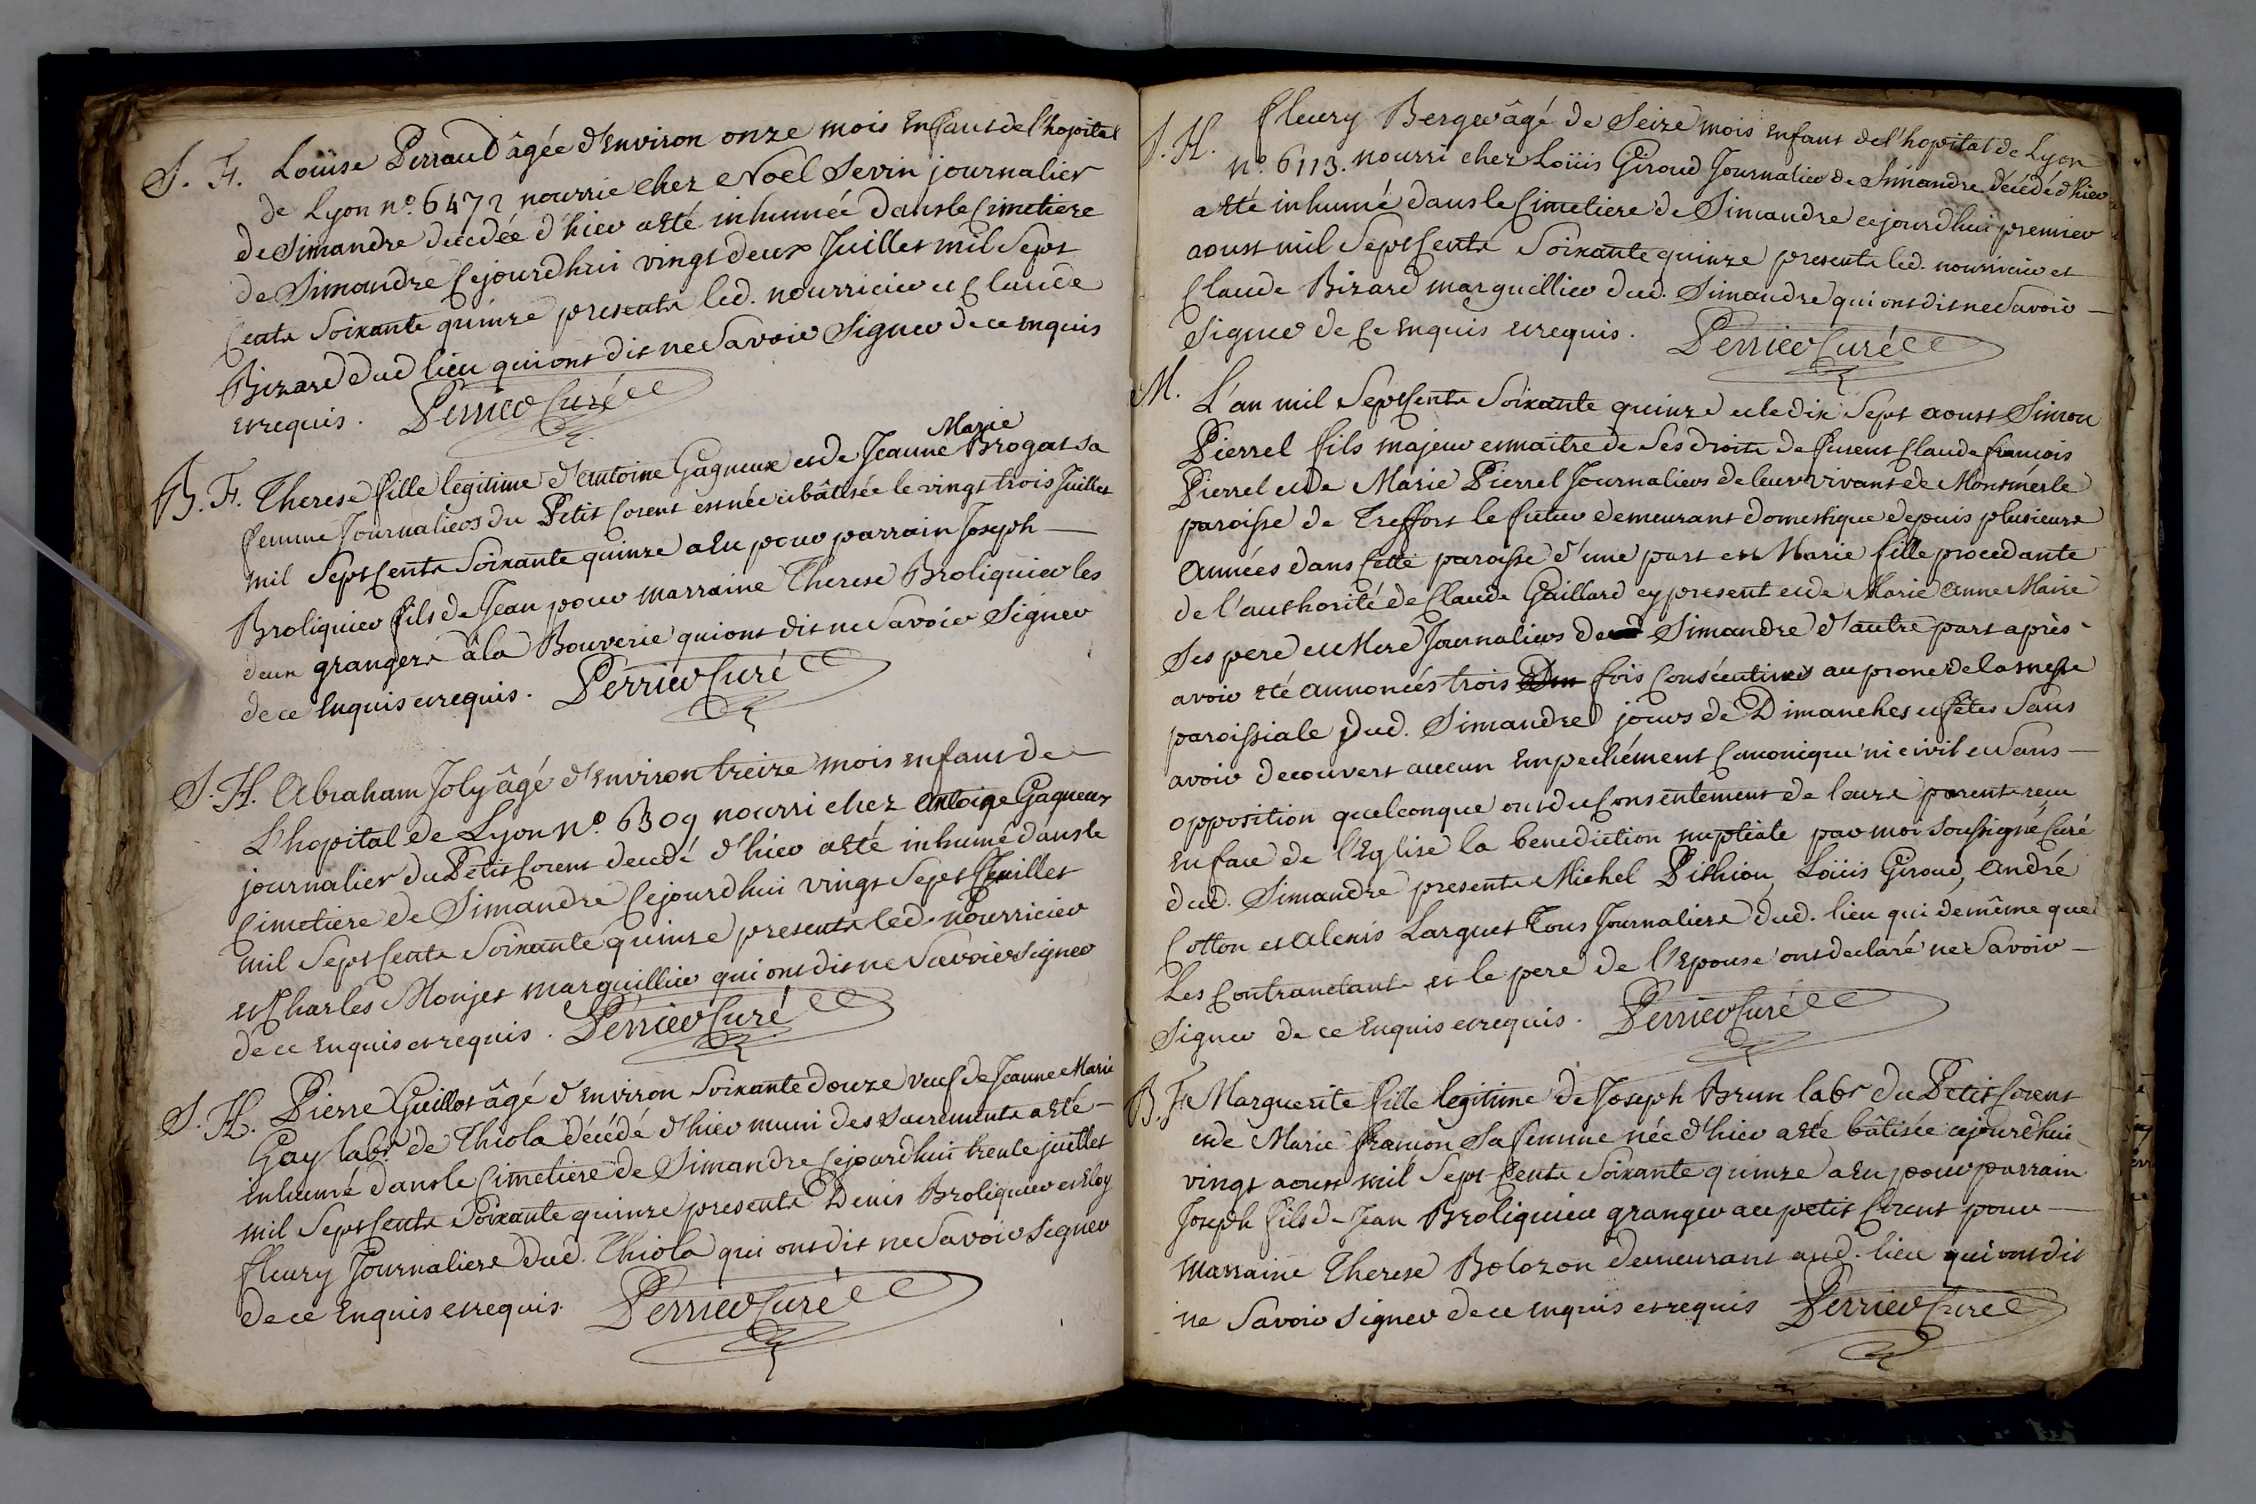 S. F. Loüise Perraud âgée d'environ onze mois enfant de l'hopital
de Lyon n.º 6472 nourrie chez Noel Sevin journalier
de Simandre decedée d'hier a eté inhumée dans le Cimetiere
de Simandre Cejourdhui vingt deux Juillet mil Sept
Cents Soixante quinze presents led. nourricier et Claude
Bizard dud lieu qui ont dit ne Savoir Signer de ce enquis
et requis. Perrier Curé
Marie
B. F. Therese fille legitime d'antoine Gagneux et de Jeanne Brogat sa
femme Journaliers du Petit Corent est née et bâtisée le vingt trois Juillet
mil Sept Cents Soixante quinze a eu pour parrain Joseph
Broliquier fils de Jean pour marraine Therese Broliquier les
deux grangers à la Bouverie qui ont dit ne Savoir Signer
de ce Enquis et requis. Perrier Curé
S. H. Abraham Joly âgé d'environ treize mois enfant de
L'hopital de Lyon n.º 6309 nourri chez antoine Gagneux
journalier du Petit Corent decedé d'hier a eté inhumé dans le
Cimetiere de Simandre Cejourdhui vingt Sept Juillet
mil Sept Cents Soixante quinze presents led. Nourricier
et Charles Monjet marguillier qui ont dit ne Savoir signer
de ce Enquis et requis. Perrier Curé
S. H. Pierre Guillot âgé d'Environ Soixante douze veuf de Jeanne Marie
Gay labr. de Thiola décédé d'hier muni des Sacrements a eté
inhumé dans le Cimetiere de Simandre Cejourdhui trente juillet
mil Sept Cents Soixante quinze presents Denis Broliquier et Eloy
fleury Journaliers dud. Thiola qui ont dit ne Savoir Signer
de ce Enquis et requis. Perrier Curé
S. H. fleury Berger âgé de Seize mois enfant de l'hopital de Lyon
n.º 6113. nourri chez Loüis Giroud Journalier de Simandre décédé d'hier
a eté inhumé dans le Cimetiere de Simandre cejourdhui premier
aoust mil Sept Cents Soixante quinze presents led. nourricier et
Claude Bizard marguillier dud. Simandre qui ont dit ne Savoir
Signer de Ce Enquis et requis. Perrier Curé
M. L'an mil Sept Cents Soixante quinze et le dix Sept aoust Simon
Pierrel fils majeur et maitre de Ses droits de furent Claude francois
Pierrel et de Marie Pierrel Journaliers de leur vivant de Montmerle
paroisse de Treffort le futur demeurant domestique depuis plusieurs
Années dans Cette paroisse d'une part et Marie fille procedante
de l'authorité de Claude Gaillard cy present et de Marie Anne Maire
Ses pere et Mere Journaliers de Simandre d'autre part après
avoir eté annoncés trois fois Consécutives au prone de la messe
paroissiale dud. Simandre jours de Dimanches et fêtes Sans
avoir decouvert aucun Empechément Canonique ni civil et Sans
opposition quelconque ont du Consentement de leurs parents reçu
en face de l'Eglise la benediction nuptiale par moi Soussigné, Curé
dud. Simandre presents Michel Pithion, Loüis Giroud, André
Cotton et Alexis Larguet Tous Journaliers dud. lieu qui de même que
Les Contractants et le pere de l'Epouse ont declaré ne Savoir
Signer de ce Enquis et requis. Perrier Curé
B. F. Marguerite fille legitime de Joseph Brun labr du Petit Corent
et de Marie francon Sa femme née d'hier a eté bâtisée cejourdhui
vingt aoust mil Sept Cents Soixante quinze a eu pour parrain
Joseph fils de Jean Broliquier granger au petit Corent pour
marraine Therese Bolozon demeurant aud. lieu qui ont dit
ne Savoir Signer de ce enquis et requis Perrier Curé